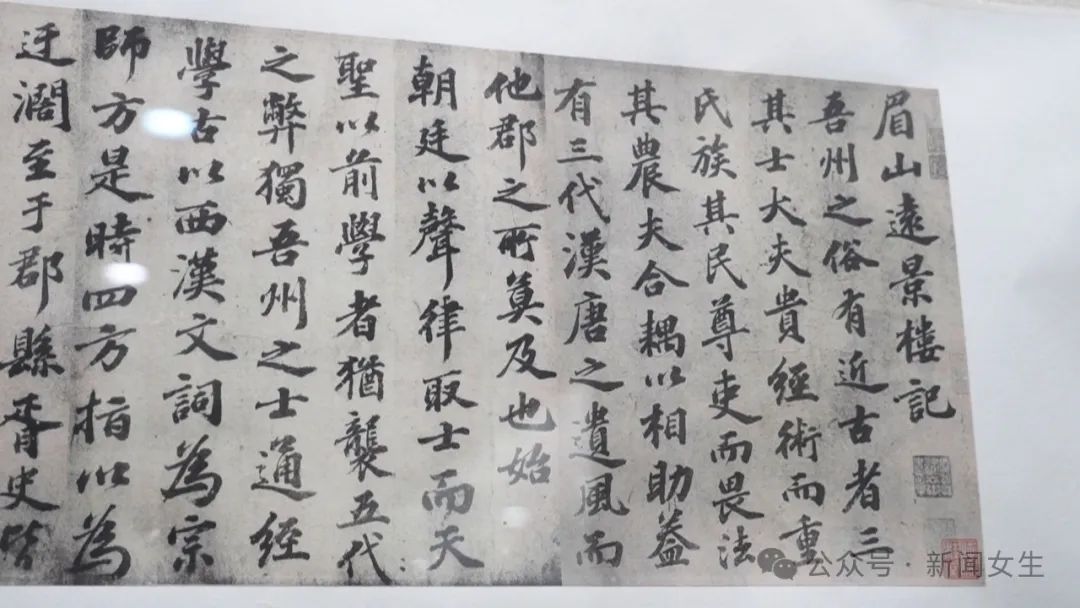 眉山遠景樓記
吾州之俗有近古者三
其士大夫貴經術而重
氏族其民尊吏而畏法
其農夫合耦以相助蓋
有三代漢唐之遺風而
他郡之所莫及也始
朝廷以聲律取士而天
聖以前學者猶襲五代
之弊獨吾州之士通經
學古以西漢文詞為宗
師方是時四方指以為
迂濶至于郡縣胥史皆
公众号·新闻女生